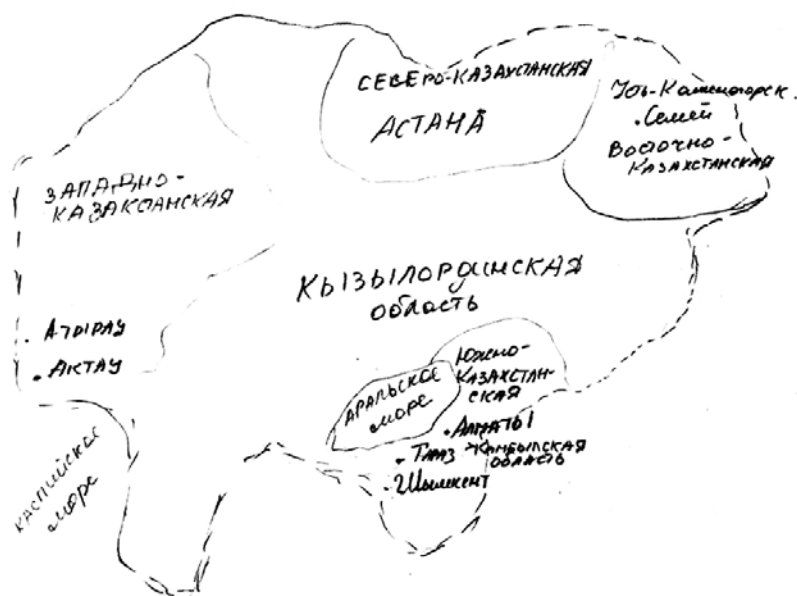 СЕВЕРО-КАЗАХСТАНСКАЯ
АСТАНА
Усть-Каменогорск
Семей
Восточно-
КАЗАХСТАНСКАЯ
ЗАПАДНО-
КАЗАКСТАНСКАЯ
КЫЗЫЛОРДИНСКАЯ
область
АТЫРАУ
АКТАУ
Южно-
КАЗАХСТАН-
СКАЯ
АРАЛЬСКОЕ
море
Алматы
Тараз Жамбылская
область
Шымкент
КАСПИЙСКОЕ
море